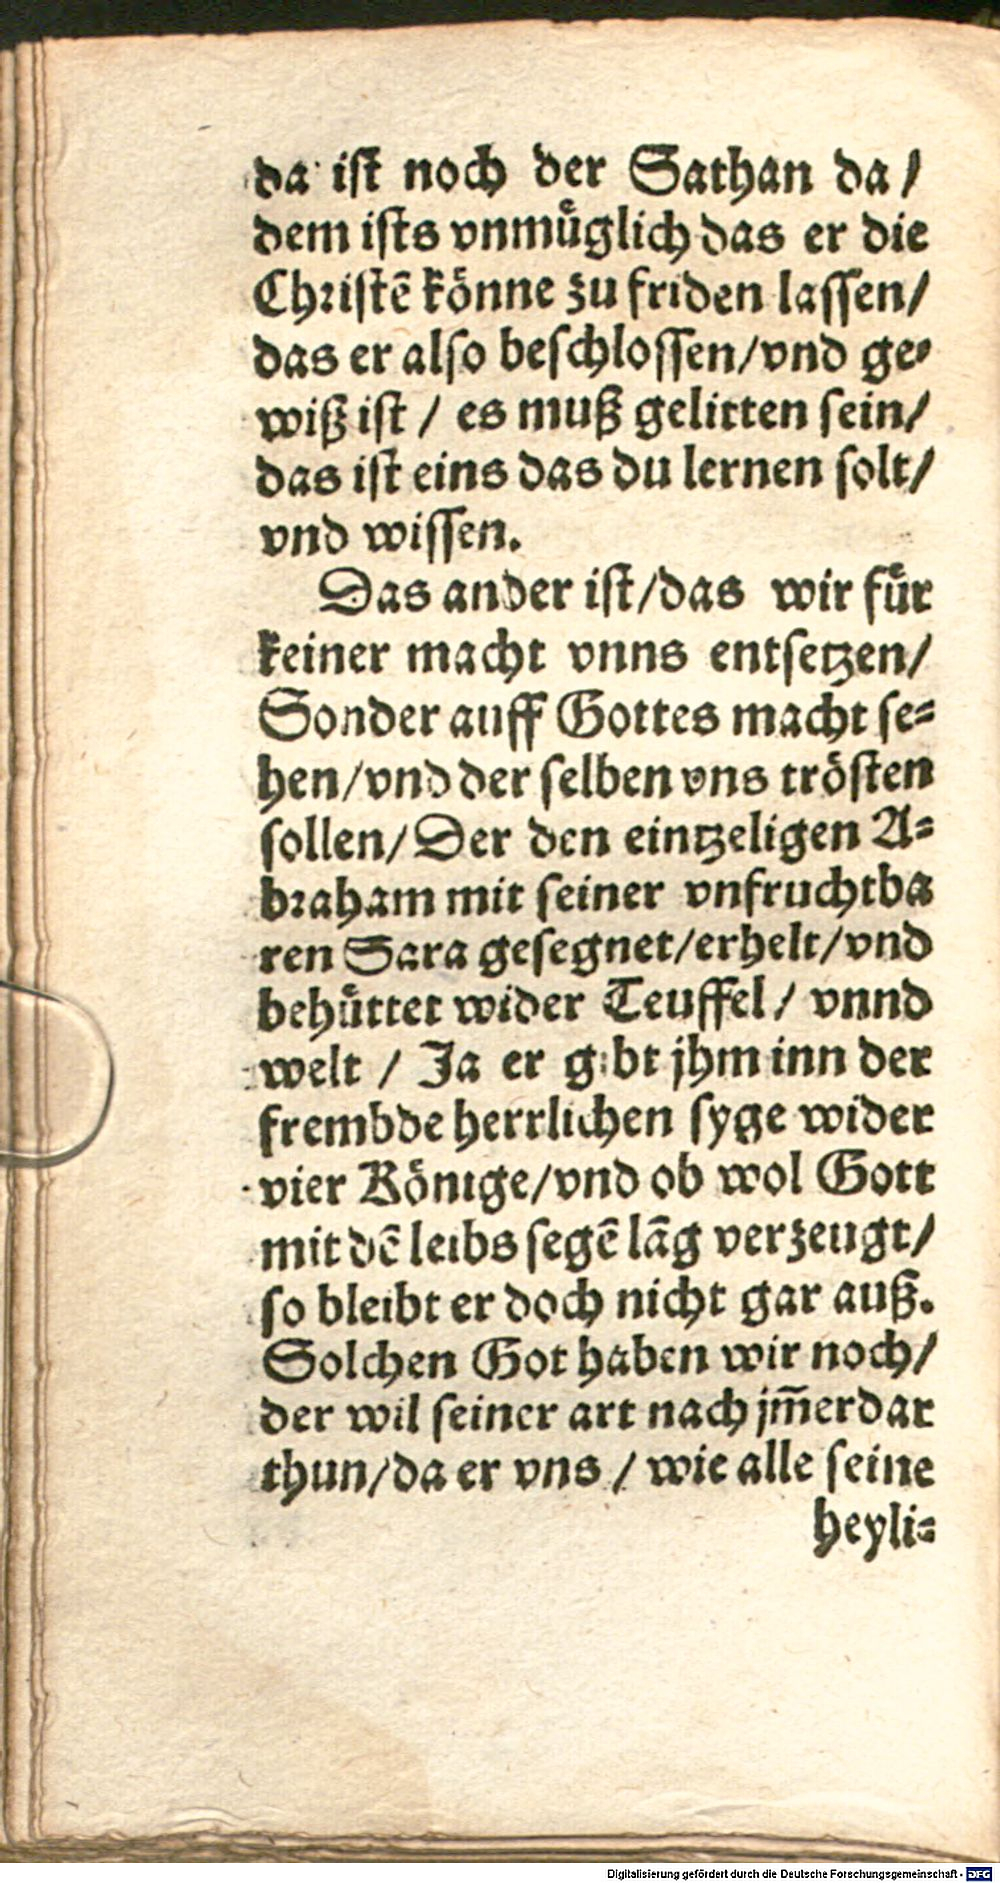 da ist noch der Sathan da /
dem ists vnmuͤglich das er die
Christē koͤnne zu friden lassen/
das er also beschlossen/vnd ge-
wiß ist / es muß gelitten sein/
das ist eins das du lernen solt/
vnd wissen.
Das ander ist/das wir fuͤr
keiner macht vnns entsetzen/
Sonder auff Gottes macht se-
hen/vnd der selben vns troͤsten
sollen/Der den eintzeligen A-
braham mit seiner vnfruchtba
ren Sara gesegnet/erhelt/vnd
behuͤttet wider Teuffel / vnnd
welt / Ja er gibt jhm inn der
frembde herrlichen syge wider
vier Koͤnige/vnd ob wol Gott
mit dē leibs segē lāg verzeugt/
so bleibt er doch nicht gar auß.
Solchen Got haben wir noch/
der wil seiner art nach jm̄erdar
thun/da er vns / wie alle seine
heyli-
Digitalisierung gefördert durch die Deutsche Forschungsgemeinschaft - DFG